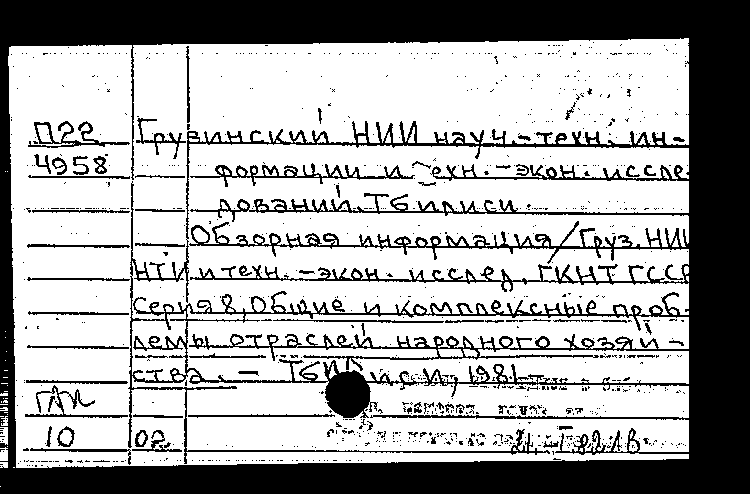 П22 Грузинский НИИ науч.-техн. ин-
4958 формации и техн.-экон. иссле-
дований. Тбилиси.
Обзорная информация / Груз. НИИ
НТИ и техн.-экон. исслед. ГКНТ ГССР
Серия 8, Общие и комплексные проб-
лемы отраслей народного хозяй-
ства. - Тбилиси, 1981-
10 02